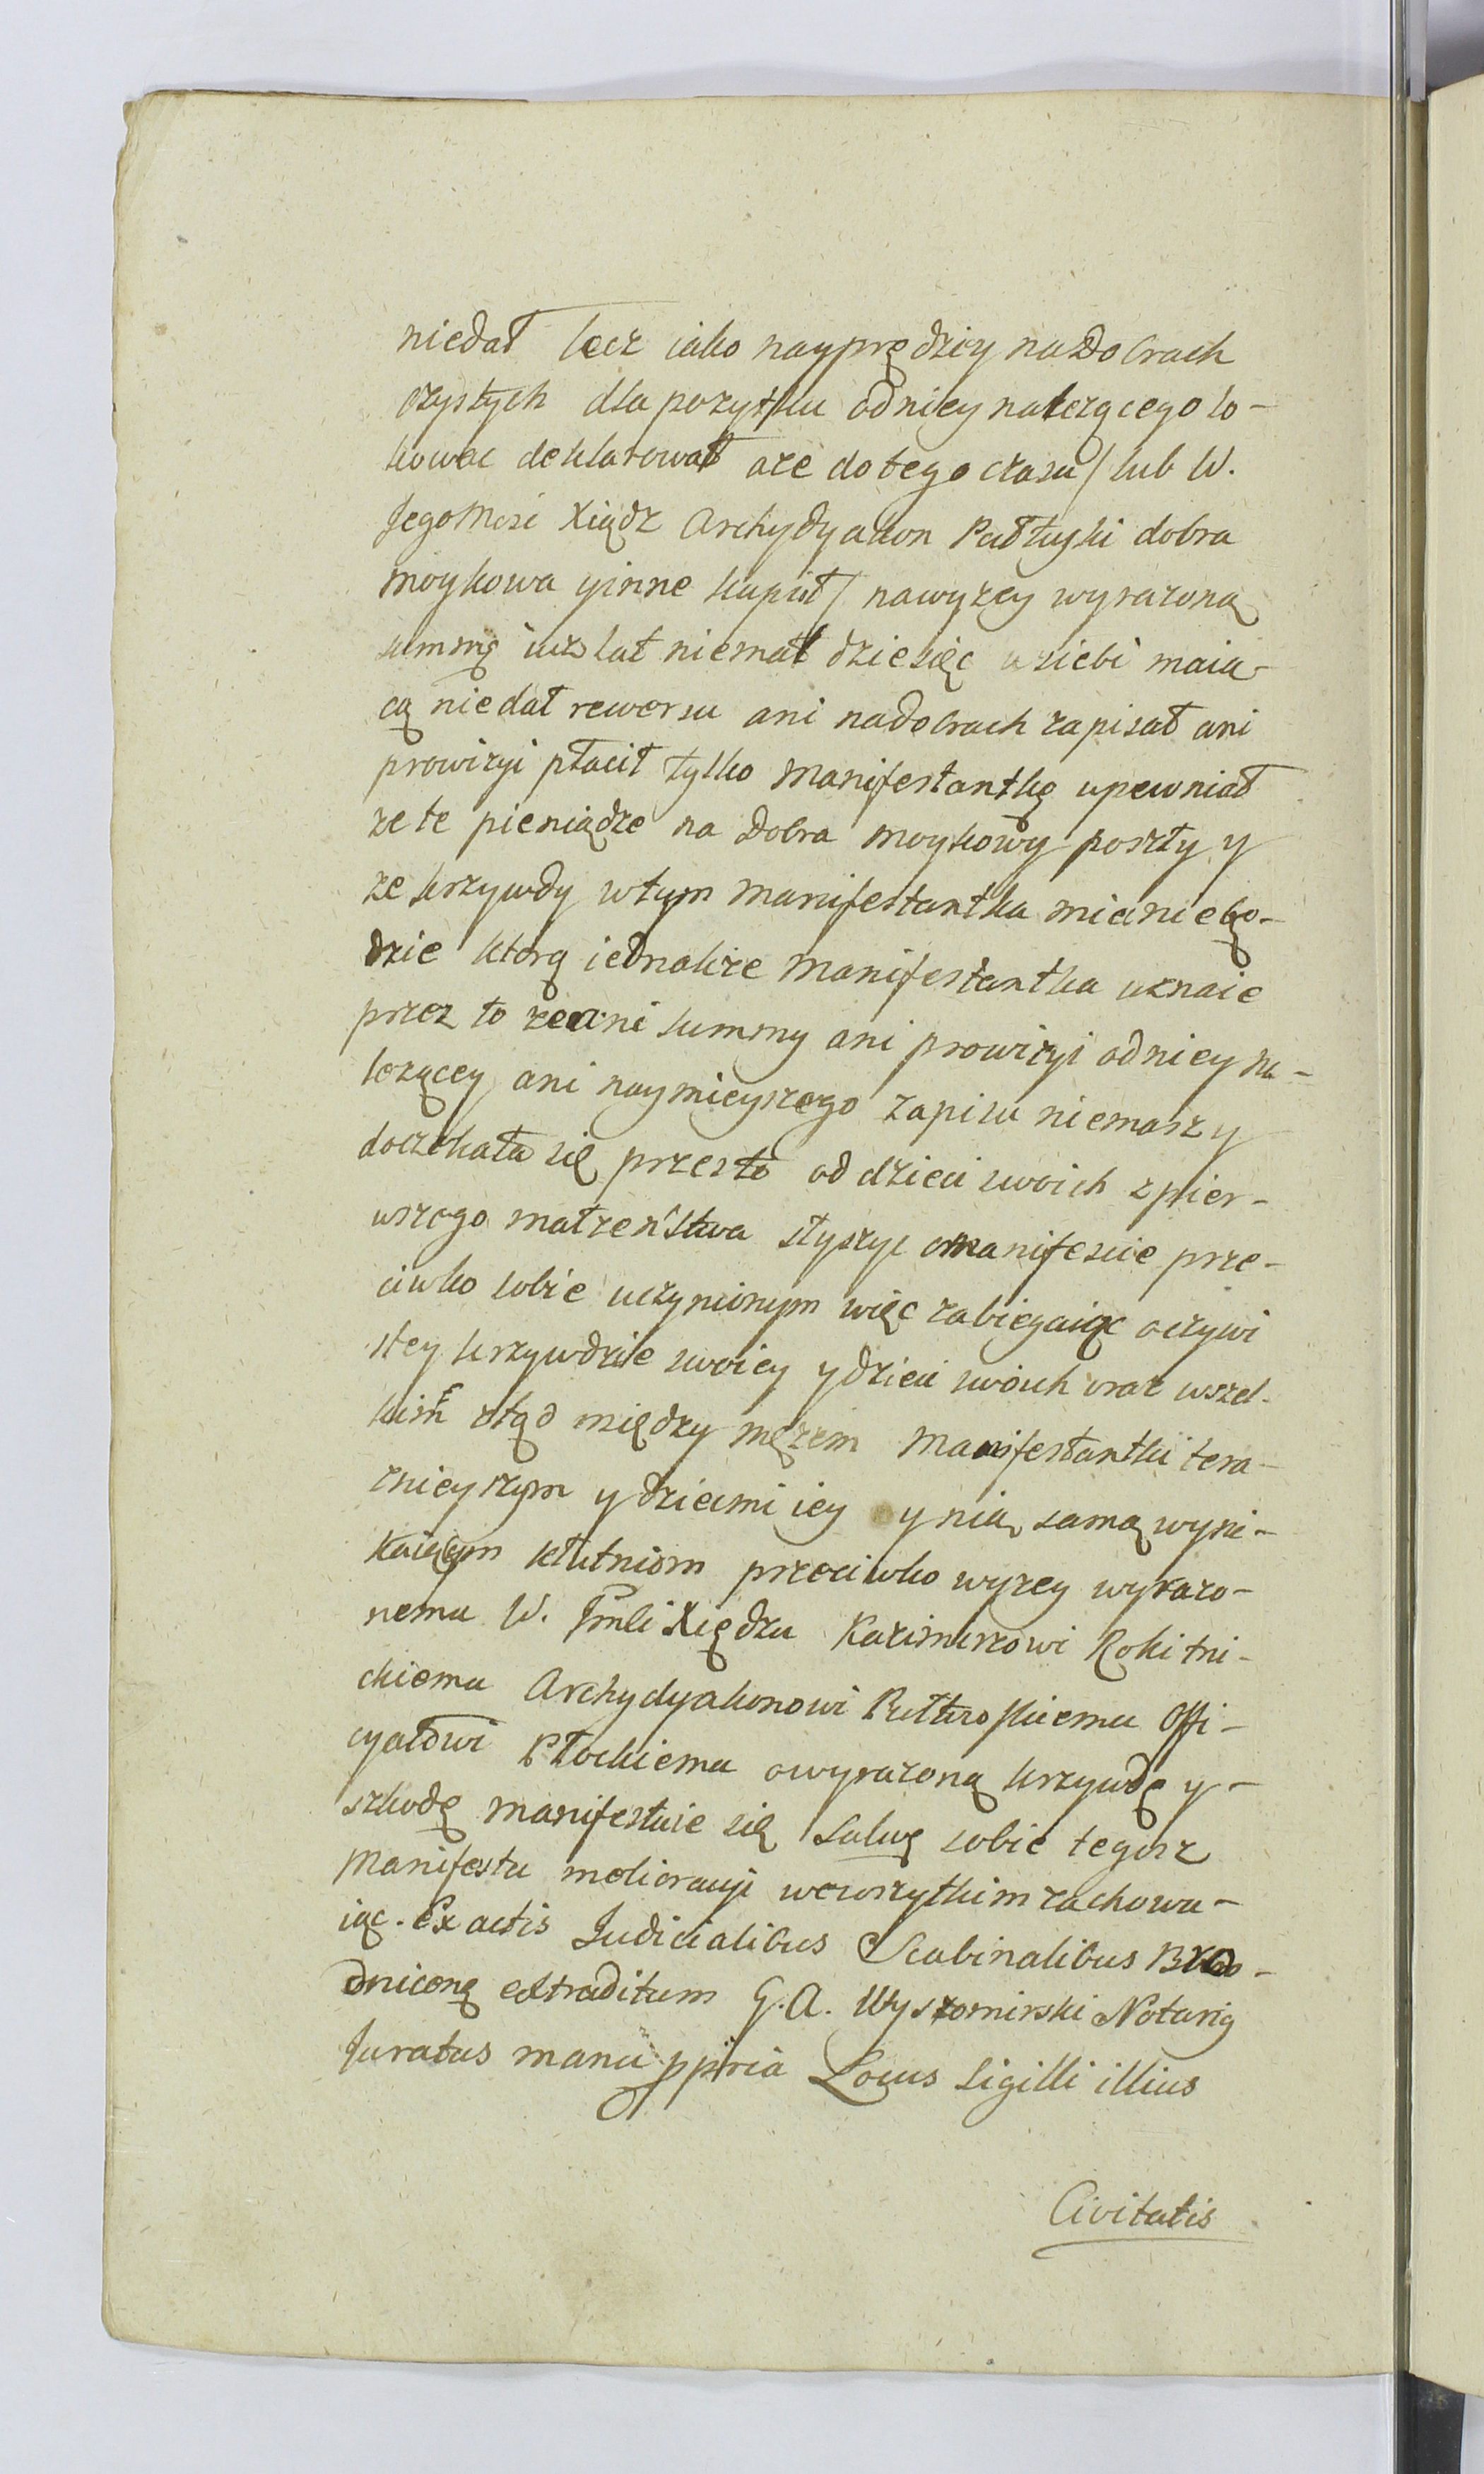 niedał lecz iako nayprędzy na Dobrach
czystych dla pozytku od niey nalezącego lo-
kowac deklarował aze do tego czasu/ lub W.
JegoMosi Xiądz Archydyakon Pułtuski dobra
moykowa y inne kupił/ na wyzey wyrazoną
summę iuz lat niemal dziesięc u siebi maia-
cą nie dał rewersu ani na dobrach zapisał ani
prowizyi płacił tylko Manifestantkę upewniał
ze te pieniądze na Dobra moykowy poszły y
ze krzywdy w tym Manifestantka miec nie bę-
dzie ktorą iednakze Manifestantka uznaie
przez to ze ani summy ani prowizyi od niey na-
lezącey ani naymieyszego zapisu niemasz y
doczekała się przez to od dzieci swoich z pier-
wszego małzeństwa słyszyc o manifescie prze-
ciwko sobie uczynionym więc zabiegaiąc oczywi
stey krzywdzie swoiey y dzieci swoich oraz wszel-
kim ztąd między męzem Manifestantki tera-
znieyszym y dziecmi iey y nią samą wyni-
kaiącym kłutniom przeciwko wyzey wyrazo-
nemu W. Jmści Xiędzu Kazimirzowi Rokitni-
ckiemu Archydyakonowi Pułtuskiemu Offi-
cyałowi Płockiemu o wyrazoną krzywdę y-
szkodę manifestuie się salwę sobie tegosz
Manifestu melioracyi wewszytkim zachowu-
iąc. Ex actis Judicialibus Scabinalibus Bro-
dnicens extraditum G. A. Wyszomirski Notariq
Juratus manu ppria Locus Sigilli illius
Civitatis